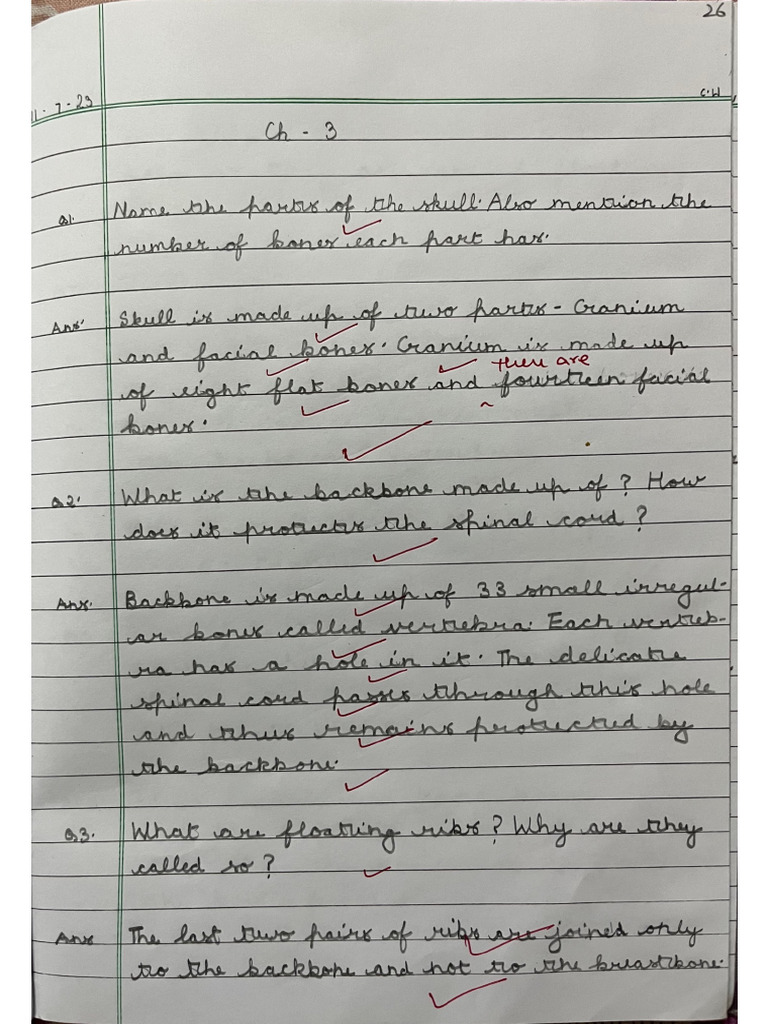 26
11-7-23
C.W
Ch - 3
Q1. Name the parts of the skull. Also mention the
number of bones each part has.
Ans. Skull is made up of two parts - Cranium
and facial bones. Cranium is made up
there are
of eight flat bones and ^ fourteen facial
bones.
Q2. What is the backbone made up of? How
does it protects the spinal cord?
Ans. Backbone is made up of 33 small irregul-
ar bones called vertebra. Each verteb-
ra has a hole in it. The delicate
spinal cord passes through this hole
and thus remains protected by
the backbone.
Q3. What are floating ribs? Why are they
called so?
Ans The last two pairs of ribs are joined only
to the backbone and not to the breastbone.